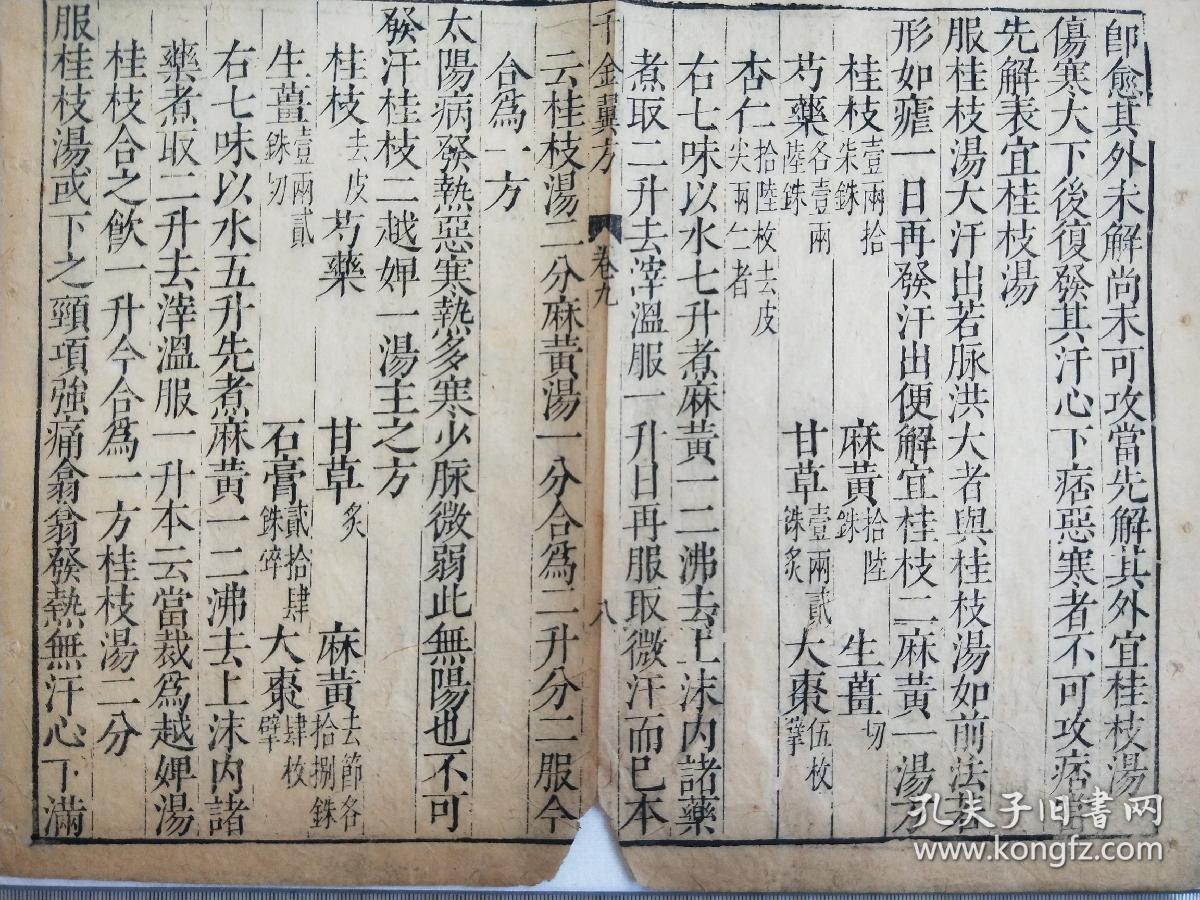 卽愈其外未解尚未可攻當先解其外宜桂枝湯
傷寒大下後復發其汗心下痞惡寒者不可攻痞
先解表宜桂枝湯
服桂枝湯大汗出若脉洪大者與桂枝湯如前法若
形如瘧一日再發汗出便解宜桂枝二麻黃一湯方
桂枝壹兩拾柒銖 麻黃拾陸銖 生薑切
芍藥各壹兩陸銖 甘草壹兩貳銖炙 大棗伍枚擘
杏仁拾陸枚去皮尖兩仁者
右七味以水七升煮麻黃一二沸去上沫内諸藥
煮取二升去滓溫服一升日再服取微汗而已本
千金翼方 卷九 八
云桂枝湯二分麻黃湯一分合爲二升分二服今
合爲一方
太陽病發熱惡寒熱多寒少脉微弱此無陽也不可
發汗桂枝二越婢一湯主之方
桂枝去皮 芍藥 甘草炙 麻黃去節各拾捌銖
生薑壹兩貳銖切 石膏貳拾肆銖碎 大棗肆枚擘
右七味以水五升先煮麻黃一二沸去上沫内諸
藥煮取二升去滓溫服一升本云當裁爲越婢湯
桂枝合之飲一升今合爲一方桂枝湯二分
服桂枝湯或下之頸項強痛翕翕發熱無汗心下滿
孔夫子旧书网
www.kongfz.com